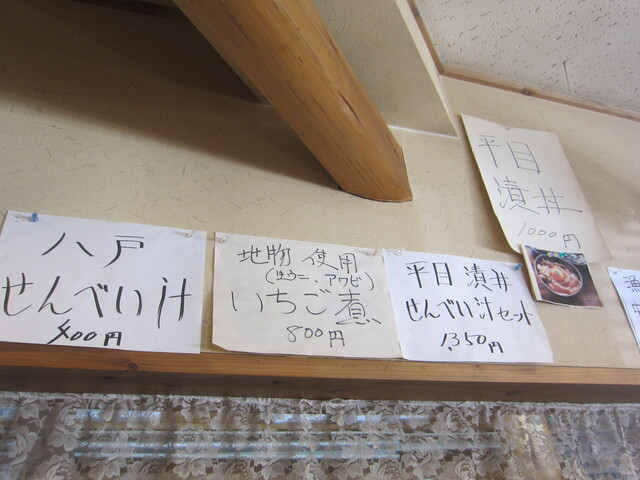 八戸
せんべい汁
400円
地物 使用
(生ウニ、アワビ)
いちご煮
800円
平目 漬丼
せんべい汁セット
1,350円
平目
漬丼
1000円